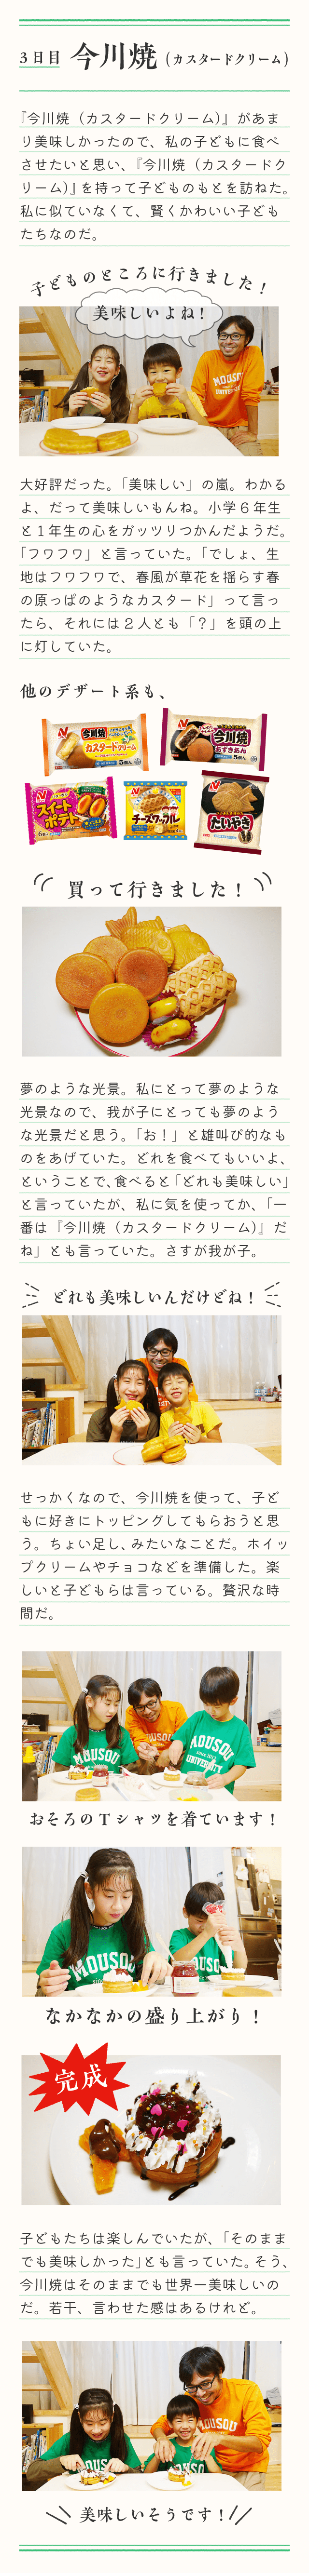 3日目 今川焼 (カスタードクリーム)
『今川焼（カスタードクリーム)』があま
り美味しかったので、私の子どもに食べ
させたいと思い、『今川焼（カスタードク
リーム)』を持って子どものもとを訪ねた。
私に似ていなくて、賢くかわいい子ども
たちなのだ。
子どものところに行きました！
美味しいよね！
MOUSOU
UNIVERSITY
大好評だった。「美味しい」の嵐。わかる
よ、だって美味しいもんね。小学６年生
と１年生の心をガッツリつかんだようだ。
「フワフワ」と言っていた。「でしょ、生
地はフワフワで、春風が草花を揺らす春
の原っぱのようなカスタード」って言っ
たら、それには２人とも「？」を頭の上
に灯していた。
他のデザート系も、
今川焼
カスタードクリーム
5個入
今川焼
あずきあん
5個入
スイート
ポテト
6個入
チーズワッフル
たいやき
買って行きました！
夢のような光景。私にとって夢のような
光景なので、我が子にとっても夢のよう
な光景だと思う。「お！」と雄叫び的なも
のをあげていた。どれを食べてもいいよ、
ということで、食べると「どれも美味しい」
と言っていたが、私に気を使ってか、「一
番は『今川焼（カスタードクリーム)』だ
ね」とも言っていた。さすが我が子。
どれも美味しいんだけどね！
せっかくなので、今川焼を使って、子ど
もに好きにトッピングしてもらおうと思
う。ちょい足し、みたいなことだ。ホイッ
プクリームやチョコなどを準備した。楽
しいと子どもらは言っている。贅沢な時
間だ。
MOUSOU
MOUSOU
UNIVERSITY
おそろのTシャツを着ています！
MOUSOU
MOUSOU
なかなかの盛り上がり！
完成
子どもたちは楽しんでいたが、「そのまま
でも美味しかった」とも言っていた。そう、
今川焼はそのままでも世界一美味しいの
だ。若干、言わせた感はあるけれど。
MOUSOU
MOUSOU
MOUSOU
美味しいそうです！